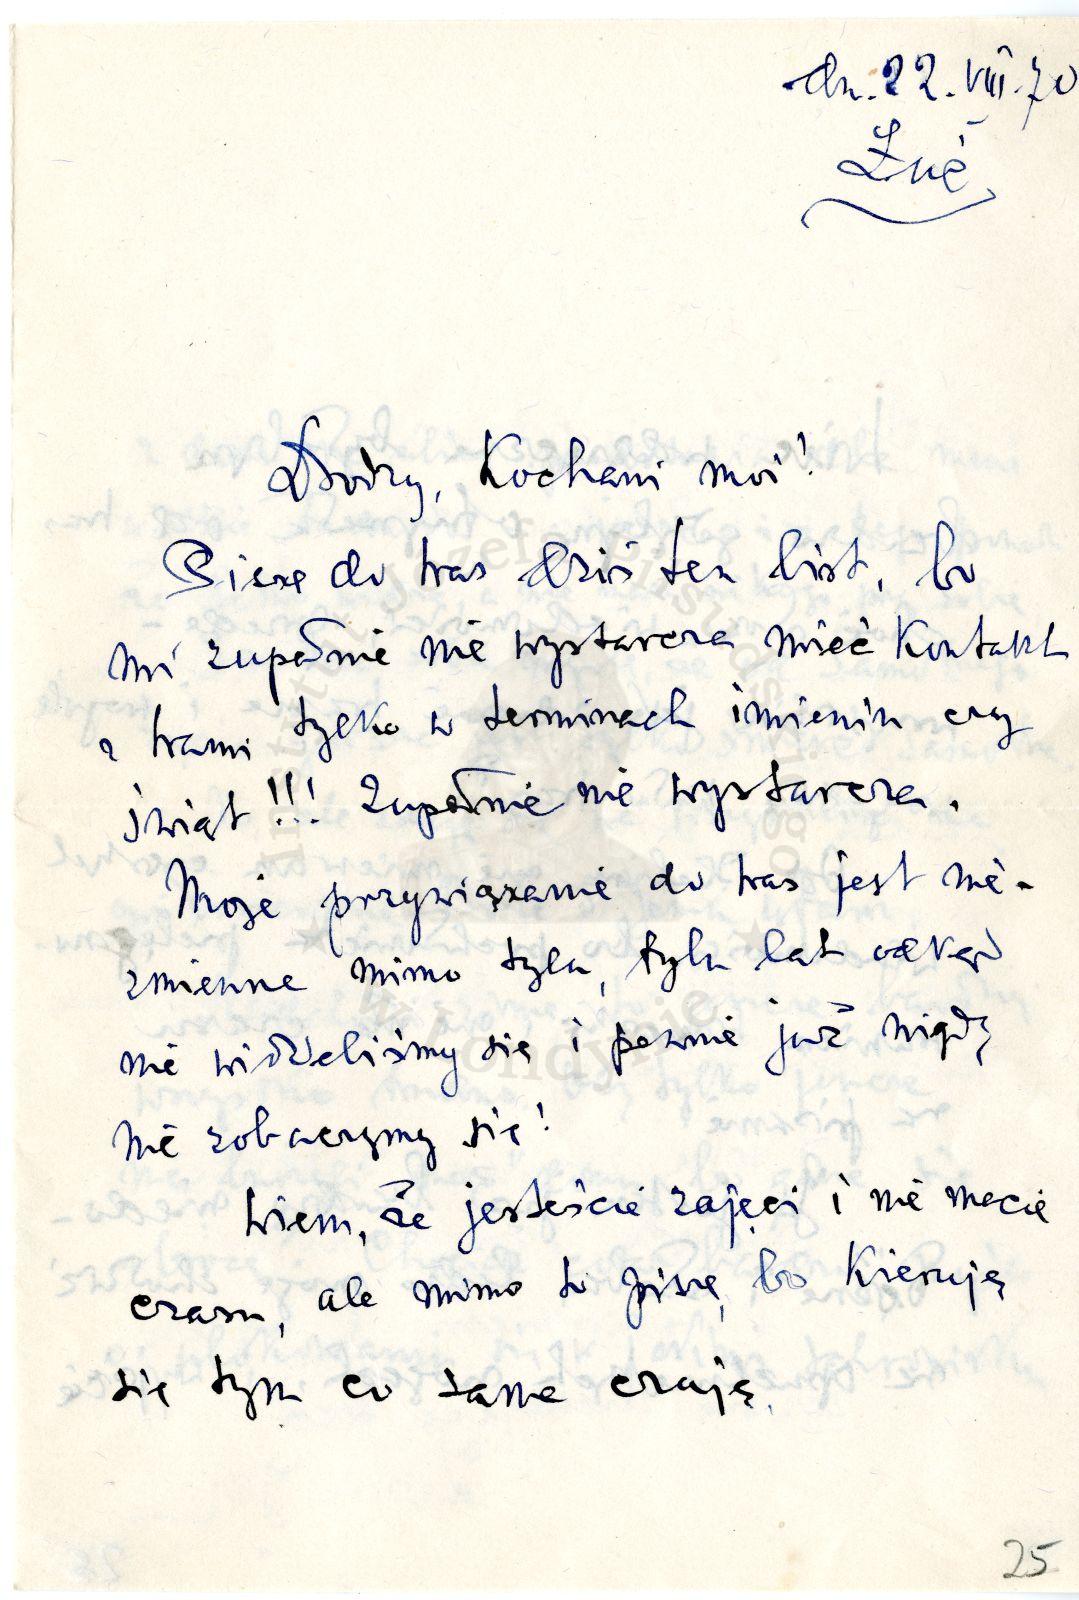 dn. 22. VIII. 70
Żnė
Drodzy, Kochani moi!
Piszę do Was dziś ten list, bo
mi zupełnie nie wystarcza mieć kontakt
z Wami tylko w terminach imienin czy
świąt!!! Zupełnie nie wystarcza.
Moje przywiązanie do Was jest nie-
zmienne mimo tylu, tylu lat odkąd
nie widzieliśmy się i pewnie już nigdy
nie zobaczymy się!
Wiem, że jesteście zajęci i nie macie
czasu, ale mimo to piszę, bo kieruję
się tym co sama czuję.
25
Instytut Józefa Piłsudskiego
w Londynie